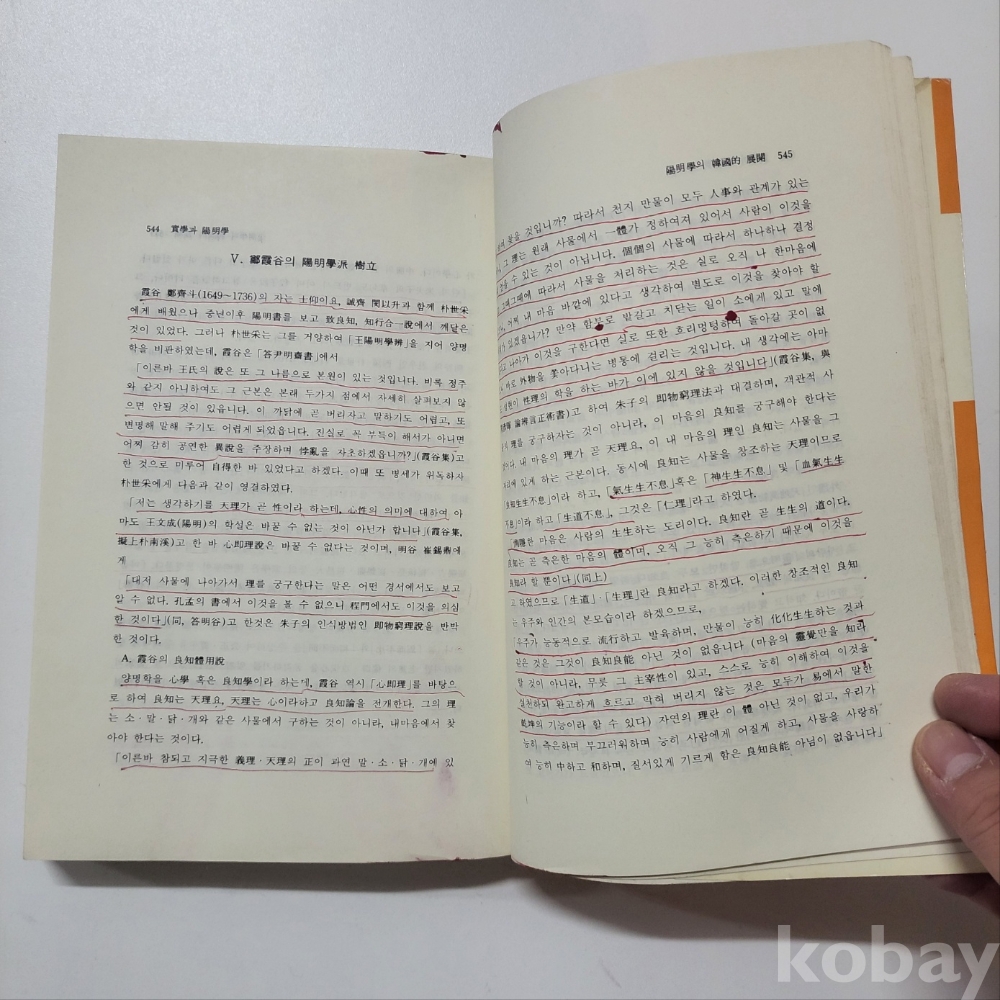 544 實學과 陽明學
Ⅴ. 鄭霞谷의 陽明學派 樹立
霞谷 鄭齊斗(1649~1736)의 자는 士仰이요, 誠齊 閔以升과 함께 朴世采
에게 배웠으나 중년이후 陽明書를 보고 致良知, 知行合一說에서 깨달은
것이 있었다. 그러나 朴世采는 그를 거양하여 「王陽明學辨」을 지어 양명
학을 비판하였는데, 霞谷은 「答尹明齋書」에서
「이른바 王氏의 說은 또 그 나름으로 본원이 있는 것입니다. 비록 정주
와 같지 아니하여도 그 근본은 본래 두가지 점에서 자세히 살펴보지 않
으면 안될 것이 있읍니다. 이 까닭에 곧 버리자고 말하기도 어렵고, 또
변명해 말해 주기도 어렵게 되었읍니다. 진실로 꼭 부득이 해서가 아니면
어찌 감히 공연한 異說을 주장하며 悖亂을 자초하겠읍니까?」(霞谷集)고
한 것으로 미루어 自得한 바 있었다고 하겠다. 이때 또 명세가 위독하자
朴世采에게 다음과 같이 영결하였다.
「저는 생각하기를 天理가 곧 性이라 하는데, 心性의 의미에 대하여 아
마도 王文成(陽明)의 학설은 바꿀 수 없는 것이 아닌가 합니다」(霞谷集,
擬上朴南溪)고 한 바 心即理說은 바꿀 수 없다는 것이며, 明谷 崔錫鼎에
게
「대저 사물에 나아가서 理를 궁구한다는 말은 어떤 경서에서도 보고
알 수 없다. 孔孟의 書에서 이것을 볼 수 없으니 程門에서도 이것을 의심
한 것이다」(同, 答明谷)고 한것은 朱子의 인식방법인 即物窮理說을 반박
한 것이다.
A. 霞谷의 良知體用說
양명학을 心學 혹은 良知學이라 하는데, 霞谷 역시 「心即理」를 바탕으
로 하여 良知는 天理요, 天理는 心이라하고 良知論을 전개한다. 그의 理
는 소·말·닭·개와 같은 사물에서 구하는 것이 아니라, 내마음에서 찾
아야 한다는 것이다.
「이른바 참되고 지극한 義理·天理의 正이 과연 말·소·닭·개에 있
陽明學의 韓國的 展開 545
찾을 것입니까? 따라서 천지 만물이 모두 人事와 관계가 있는
그 理는 원래 사물에서 一體가 정하여져 있어서 사람이 이것을
수 있는 것이 아닙니다. 個個의 사물에 따라서 하나하나 결정
그때에 따라서 사물을 처리하는 것은 실로 오직 나 한마음에
어찌 내 마음 바깥에 있다고 생각하여 별도로 이것을 찾아야 할
가 있겠읍니까? 만약 함부로 발갈고 치닫는 일이 소에게 있고 말에
고 나아가 이것을 구한다면 실로 또한 흐리멍텅하여 돌아갈 곳이 없
바로 外物을 쫓아다니는 병통에 걸리는 것입니다. 내 생각에는 아마
성현이 性理의 학을 하는 바가 이에 있지 않을 것입니다」(霞谷集, 與
論辨言正術書)고 하여 朱子의 即物窮理法과 대결하며, 객관적 사
理를 궁구하자는 것이 아니라, 이 마음의 良知를 궁구해야 한다는
내 마음의 理가 곧 天理요, 이 내 마음의 理인 良知는 사물을 그
에 있게 하는 근본이다. 동시에 良知는 사물을 창조하는 天理이므로
良知生生不息」이라 하고, 「氣生生不息」혹은 「神生生不息」 및 「血氣生生
不息」이라 하고 「生道不息」, 그것은 「仁理」라고 하였다.
惻隱한 마음은 사람의 生生하는 도리이다. 良知란 곧 生生의 道이다.
는 곧 측은한 마음의 體이며, 오직 그 능히 측은하기 때문에 이것을
良知라 할 뿐이다」(同上)
고 하였으므로 「生道」·「生理」란 良知라고 하겠다. 이러한 창조적인 良知
는 우주와 인간의 본모습이라 하겠으므로,
「우주가 능동적으로 流行하고 발육하며, 만물이 능히 化化生生하는 것과
같은 것은 그것이 良知良能 아닌 것이 없읍니다 (마음의 靈覺만을 知라
할 것이 아니라, 무릇 그 主宰性이 있고, 스스로 능히 이해하여 이것을
실천하되 완고하게 흐르고 막혀 버리지 않는 것은 모두가 易에서 말한
乾坤의 기능이라 할 수 있다) 자연의 理란 이 體 아닌 것이 없고, 우리가
능히 측은하며 부끄러워하며 능히 사람에게 어질게 하고, 사물을 사랑하
여 능히 中하고 和하며, 질서있게 기르게 함은 良知良能 아님이 없읍니다」
kobay